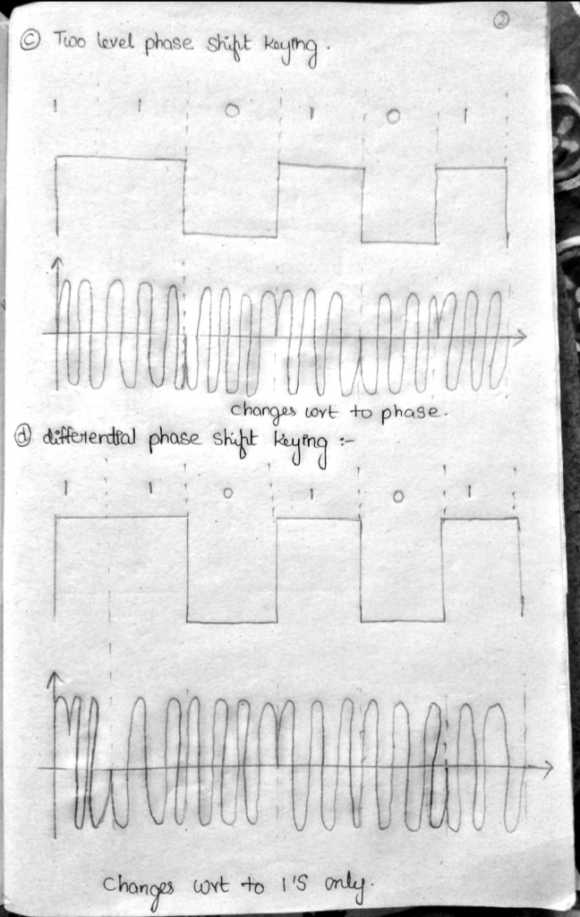 ②
ⓒ Two level phase shift keying.
1 1 0 1 0 1
changes wrt to phase.
ⓓ differential phase shift keying :-
1 1 0 1 0 1
changes wrt to 1'S only.